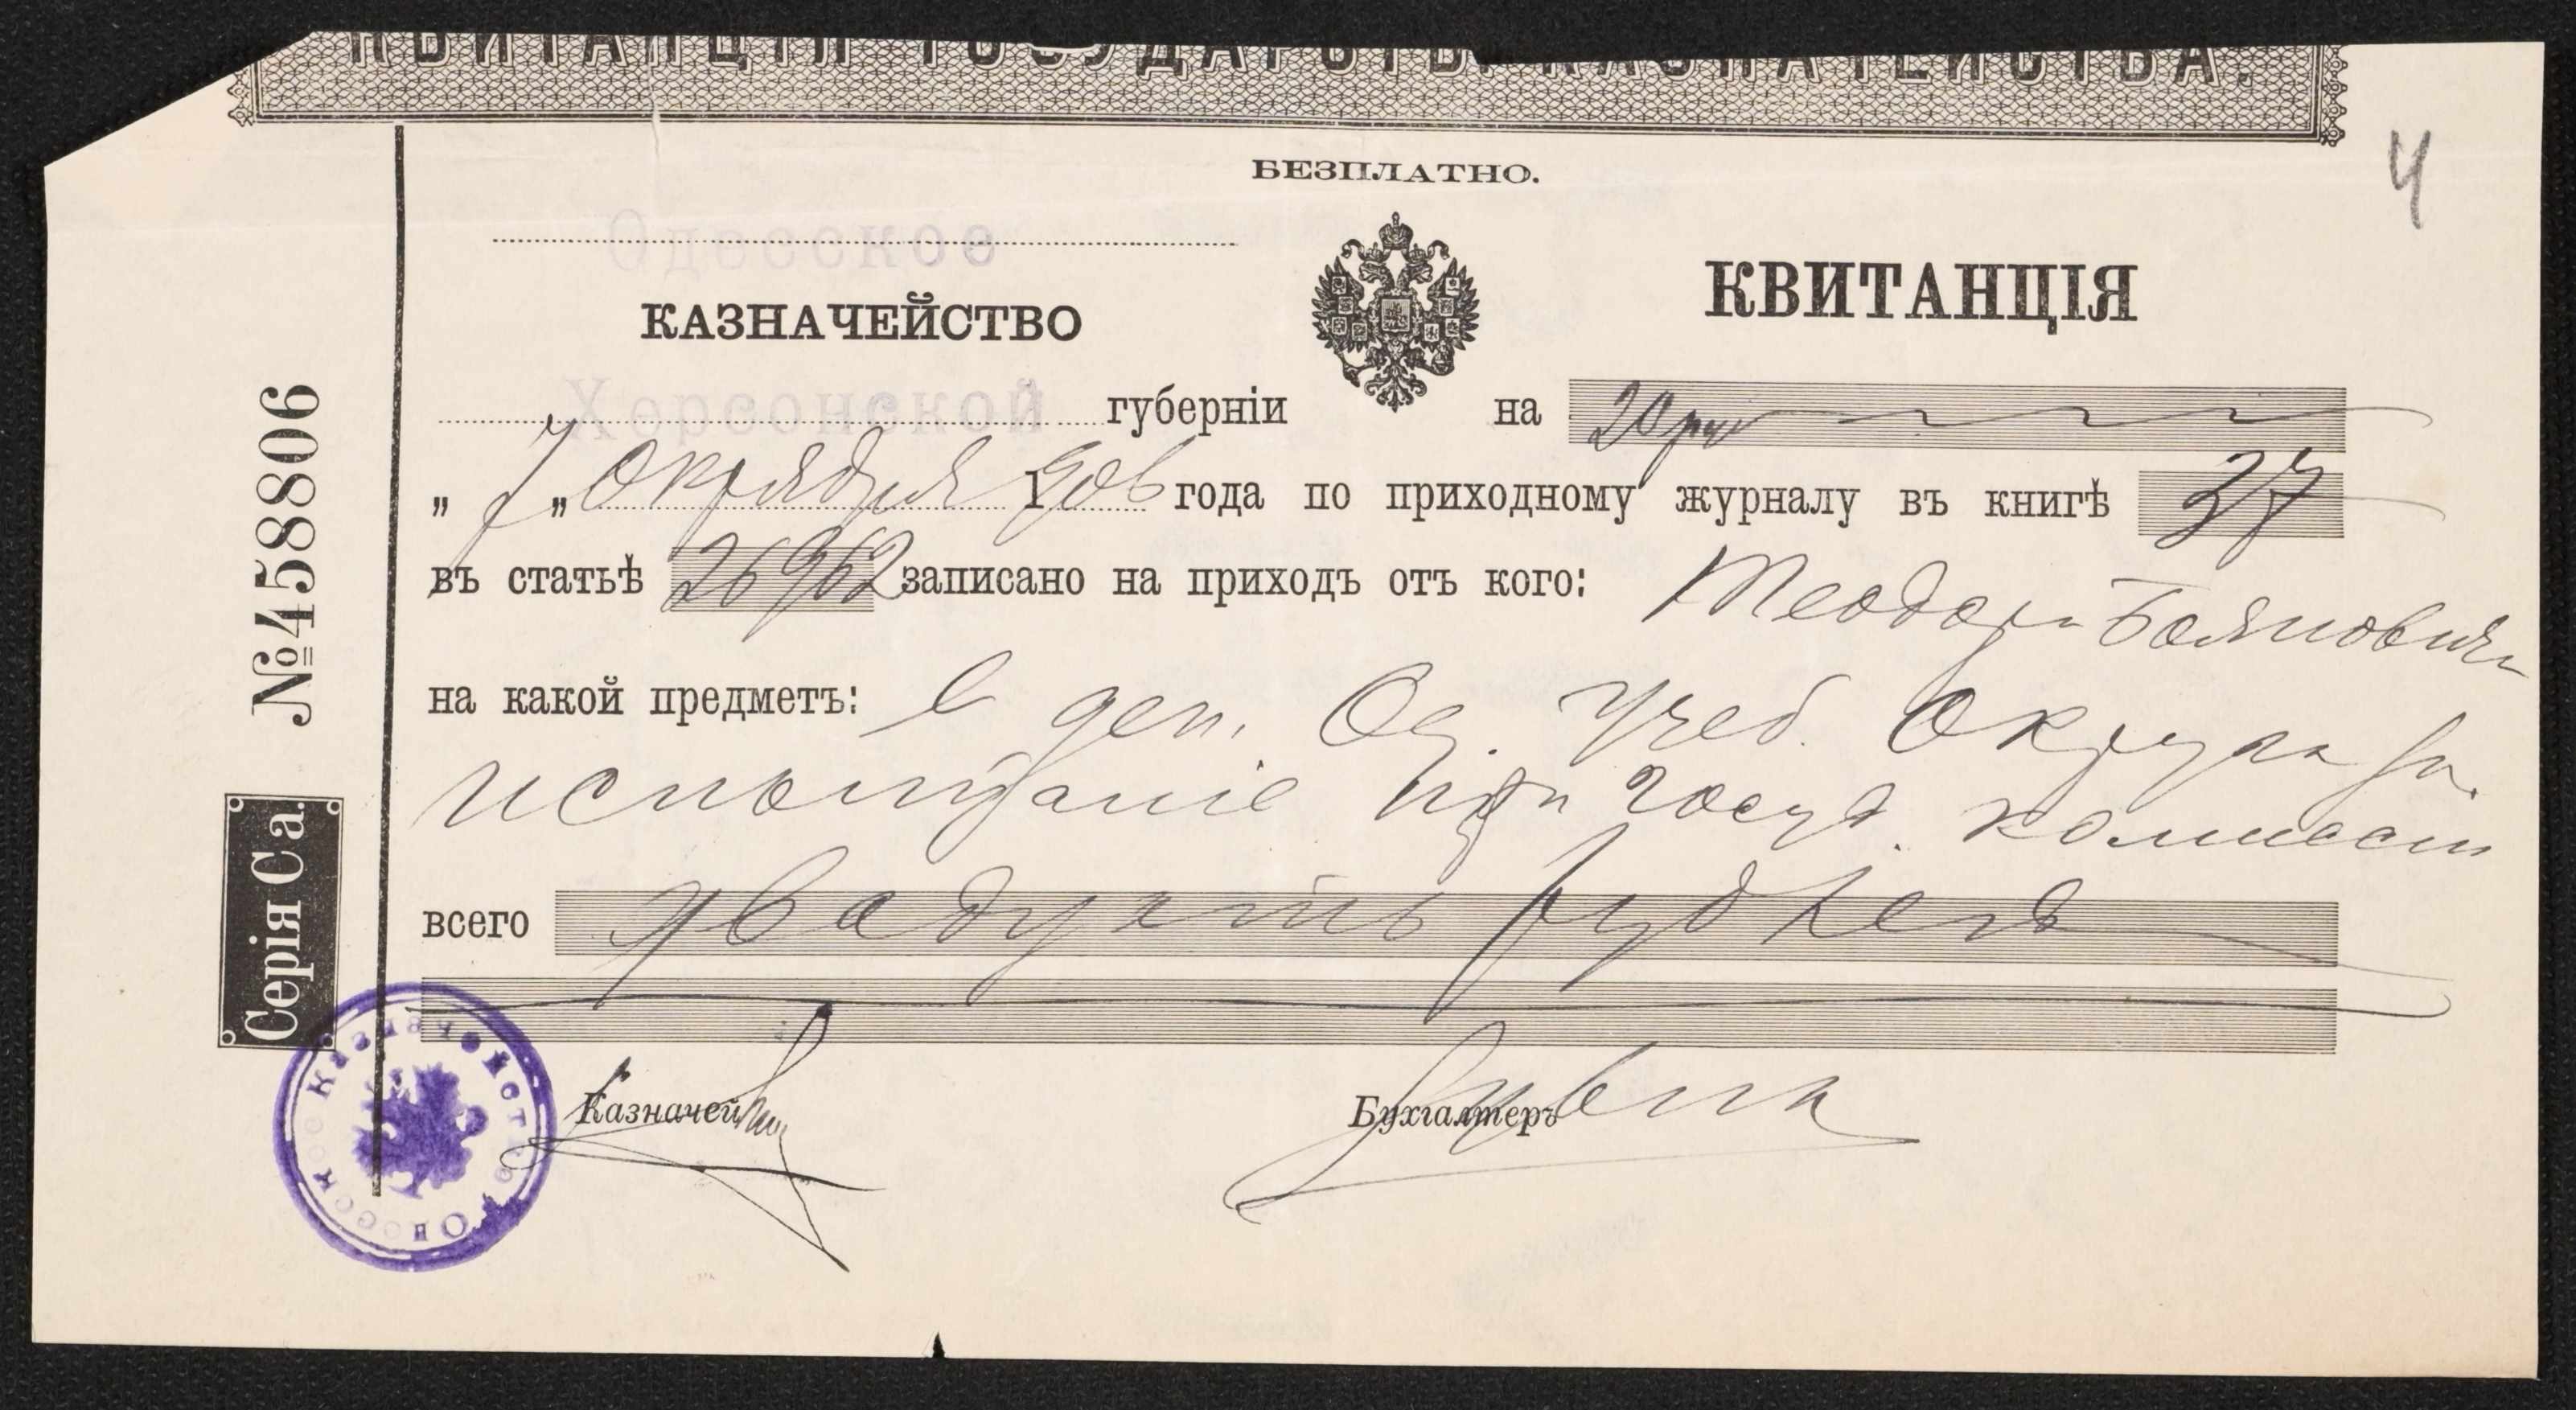 КВИТАНЦІЯ ГОСУДАРСТВ. КАЗНАЧЕЙСТВА.
4
БЕЗПЛАТНО.
Одесское
КАЗНАЧЕЙСТВО
КВИТАНЦІЯ
Херсонской губерніи
на 20 руб
„ 7 „ Октября 1906 года по приходному журналу въ книгѣ 37
въ статьѣ 26962 записано на приходъ отъ кого: Теодоръ Бояновичъ
на какой предметъ: в деп. Од. Учеб. Округа за
испытаніе при Госуд. комиссіи
всего двадцать рублей
Казначей
Бухгалтеръ
№ 458806
Серія Са.
Одесское Казначейство